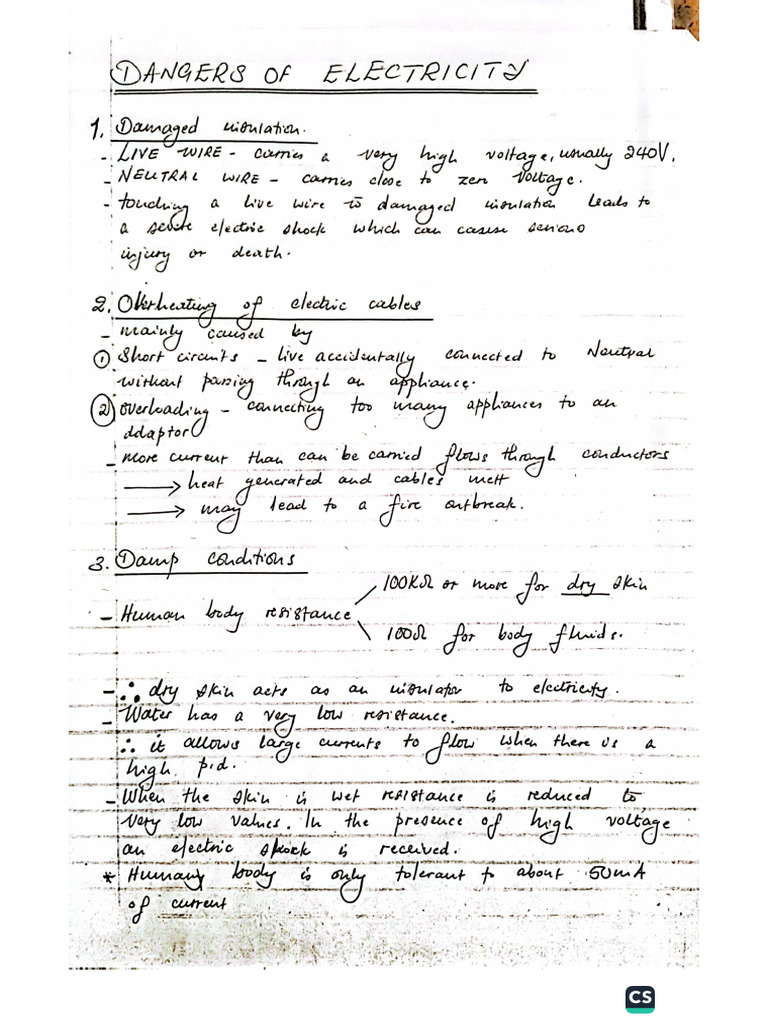 DANGERS OF ELECTRICITY
1. Damaged insulation.
- LIVE WIRE - carries a very high voltage, usually 240V.
- NEUTRAL WIRE - carries close to zero voltage.
- touching a live wire to damaged insulation leads to
a severe electric shock which can cause serious
injury or death.
2. Overheating of electric cables
- mainly caused by
① Short circuits - live accidentally connected to Neutral
without passing through an appliance.
② overloading - connecting too many appliances to an
adaptor
- more current than can be carried flows through conductors
→ heat generated and cables melt
→ may lead to a fire outbreak.
3. Damp conditions
100KΩ or more for dry skin
- Human body resistance
100Ω for body fluids.
- ∴ dry skin acts as an insulator to electricity.
- Water has a very low resistance.
∴ it allows large currents to flow when there is a
high p.d.
- When the skin is wet resistance is reduced to
very low values. In the presence of high voltage
an electric shock is received.
* Human body is only tolerant to about 50mA
of current
CS